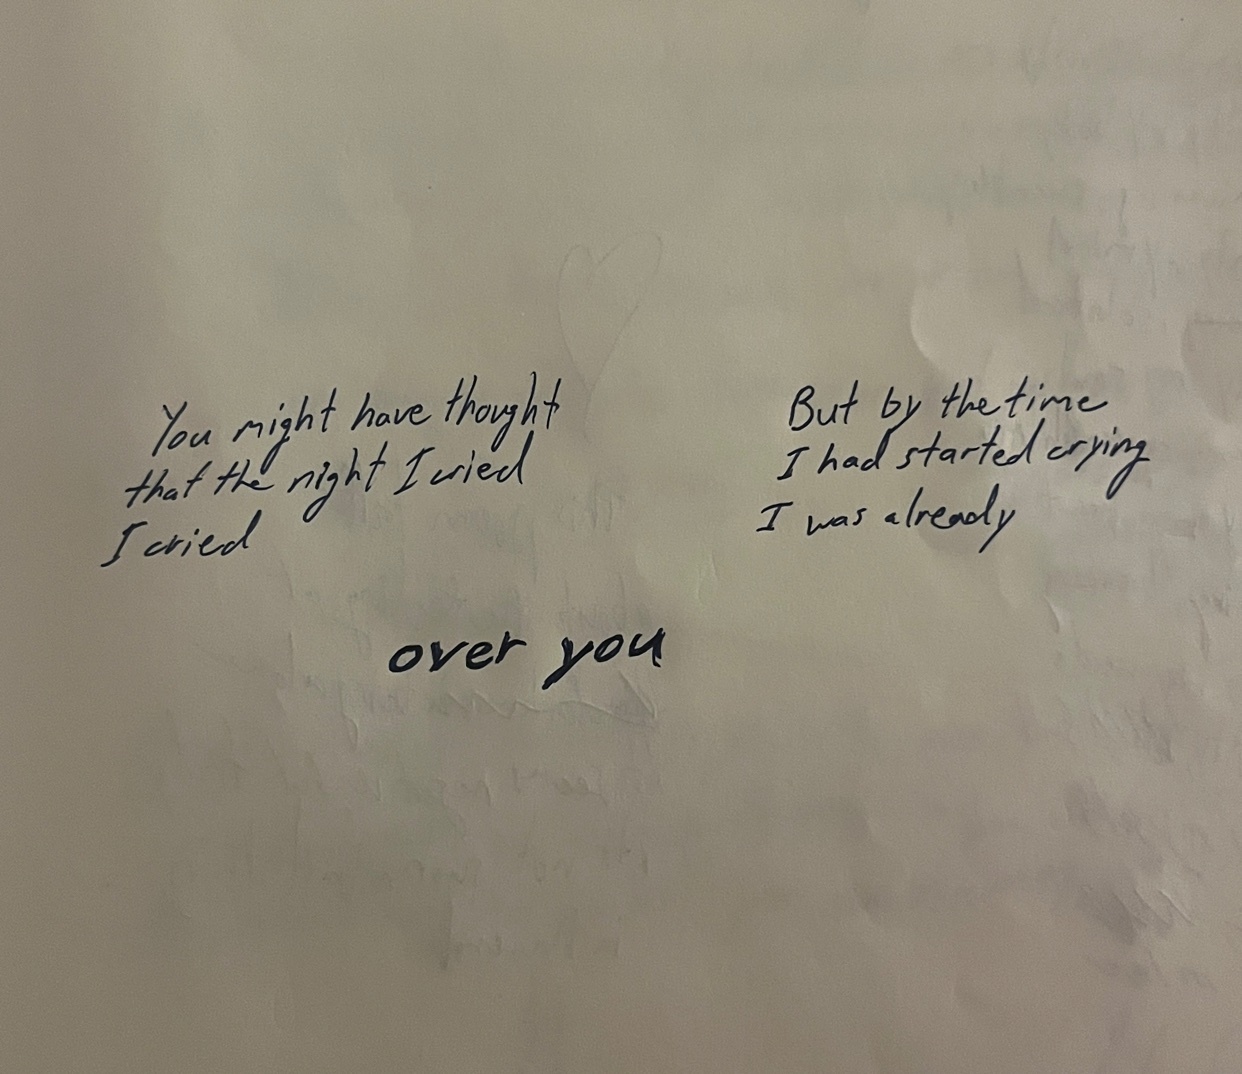 You might have thought
that the night I cried
I cried
But by the time
I had started crying
I was already
over you